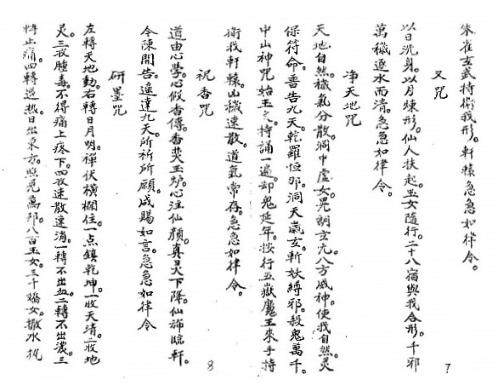 朱雀玄武持衛我形。軒轅急急如律令。
又咒
以日洗身。以月練形。仙人扶起。玉女隨行。二十八宿與我合形。千邪
萬穢逐水而清。急急如律令。
7
净天地咒
天地自然。穢氣分散。洞中虛女。晃朗玄九。八方威神。使我自然。灵
保符命。普告九天。乾羅恒那。洞天氣玄。斬妖縛邪。殺鬼萬千。
中山神咒。始玉之持誦一遍。却鬼延年。按行五嶽。魔王來手持
衛我軒轅。山穢速散。道氣常存。急急如律令。
祝香咒
8
道由心學。心假香傳。香爇玉炉。心注仙顏。真灵下降。仙旆臨軒。
令陳開告。逕達九天。所祈所願。咸賜如言。急急如律令
研墨咒
左轉天地動。右轉日月明。禪伏橫欄住。一点鎮乾坤。一收天清。二收地
灵。三收腫毒。不得痛上疼下。四收速散速消。一轉不出血。二轉不出濃。三
轉止痛。四轉退热。日出東方。照見萬邦。八百玉女。三千嬌女。撒水